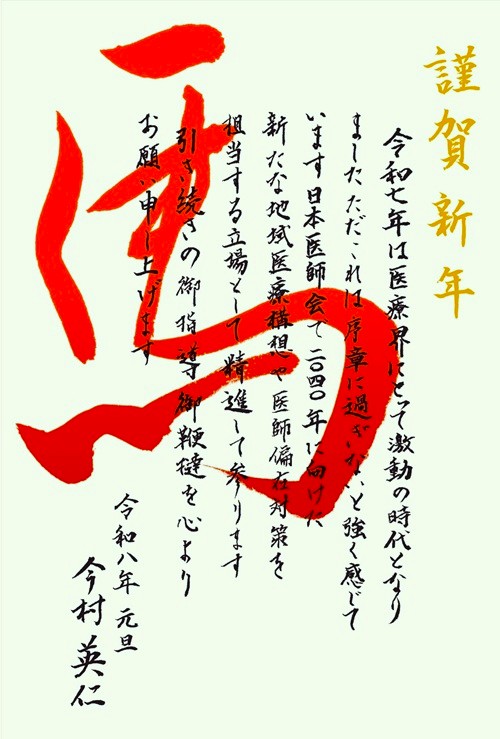 謹賀新年
令和七年は医療界にとって激動の時代となり
ました ただこれは序章に過ぎないと強く感じて
います 日本医師会で二〇四〇年に向けた
新たな地域医療構想や医師偏在対策を
担当する立場として精進して参ります
引き続きの御指導御鞭撻を心より
お願い申し上げます
令和八年 元旦
今村英仁
馬